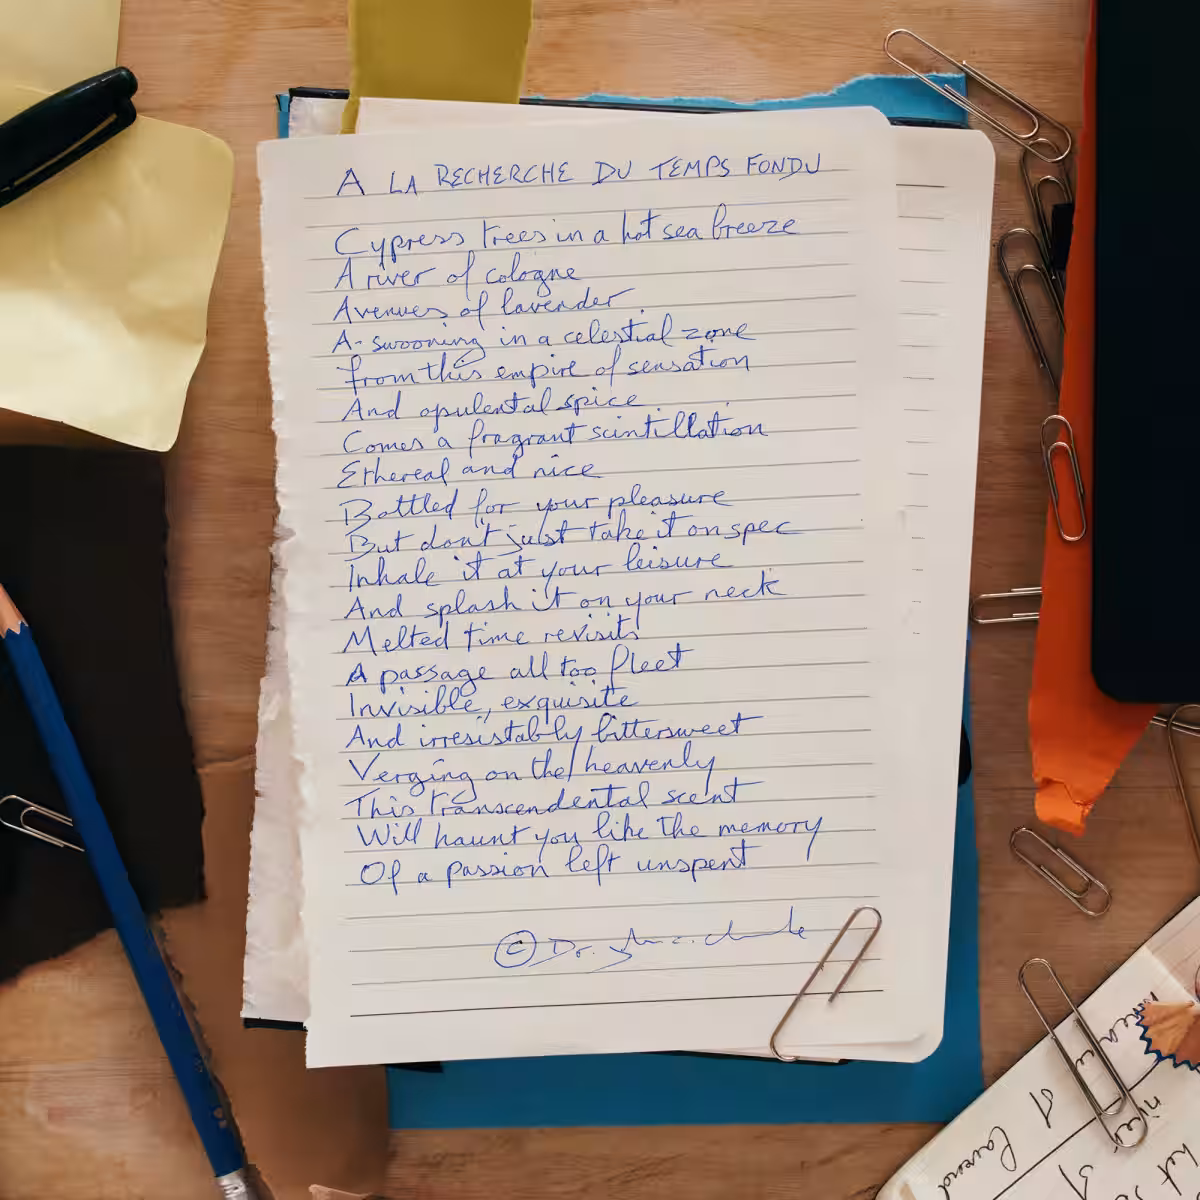 A LA RECHERCHE DU TEMPS FONDU
Cypress trees in a hot sea breeze
A river of cologne
Avenues of lavender
A-swooning in a celestial zone
from this empire of sensation
And opulental spice
Comes a fragrant scintillation
Ethereal and nice
Bottled for your pleasure
But don't just take it on spec
Inhale it at your leisure
And splash it on your neck
Melted time revisits
A passage all too fleet
Invisible, exquisite
And irresistably bittersweet
Verging on the heavenly
This transcendental scent
Will haunt you like the memory
Of a passion left unspent
© Dr.